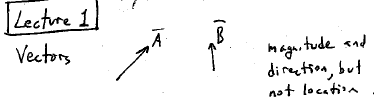 Lecture 1
Vectors
A̅
B̅
magnitude and
direction, but
not location.